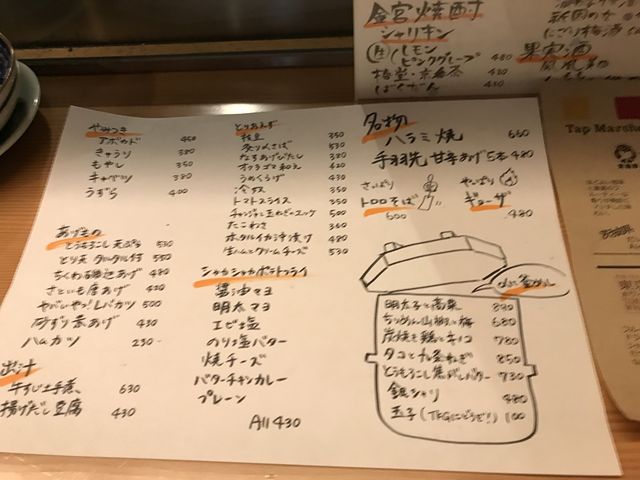 金宮焼酎
シャリキン
(生)レモン
ピンクグレープ 480
梅、
ばくだん
果実酒
Tap Marché
やみつき
アボカド 450
きゅうり 380
もやし 350
キャベツ 380
うずら 400
あげもの
とうもろこし天ぷら 530
とり天 タルタル付 550
ちくわの磯辺あげ 480
さといも唐あげ 430
やばいやつ!レバカツ 500
砂ずり素あげ 430
ハムカツ 230
出汁
牛すじ土手煮 630
揚げだし豆腐 430
とりあえず
枝豆 350
炙りめさば 530
なすあげびたし 380
オクラゴマ和え 420
うめくらげ 430
冷奴 350
トマトスライス 350
チャンジャと玉ねぎのユッケ 500
たこわさ 380
ホタルイカ沖漬け 480
生ハムとクリームチーズ 530
シャカシャカポテトフライ
醤油マヨ
明太マヨ
エビ塩
のり塩バター
焼チーズ
バターチキンカレー
プレーン
All 430
名物
ハラミ焼 660
手羽先 甘辛あげ 5本 480
さっぱり
トロロそば
600
やっぱり
ギョーザ
480
釜めし
明太子と高菜 880
ちりめん山椒と梅 680
炭焼き鶏とキノコ 780
タコと九条ねぎ 850
とうもろこし焦がしバター 730
銀シャリ 480
玉子(TKGにどうぞ!) 100